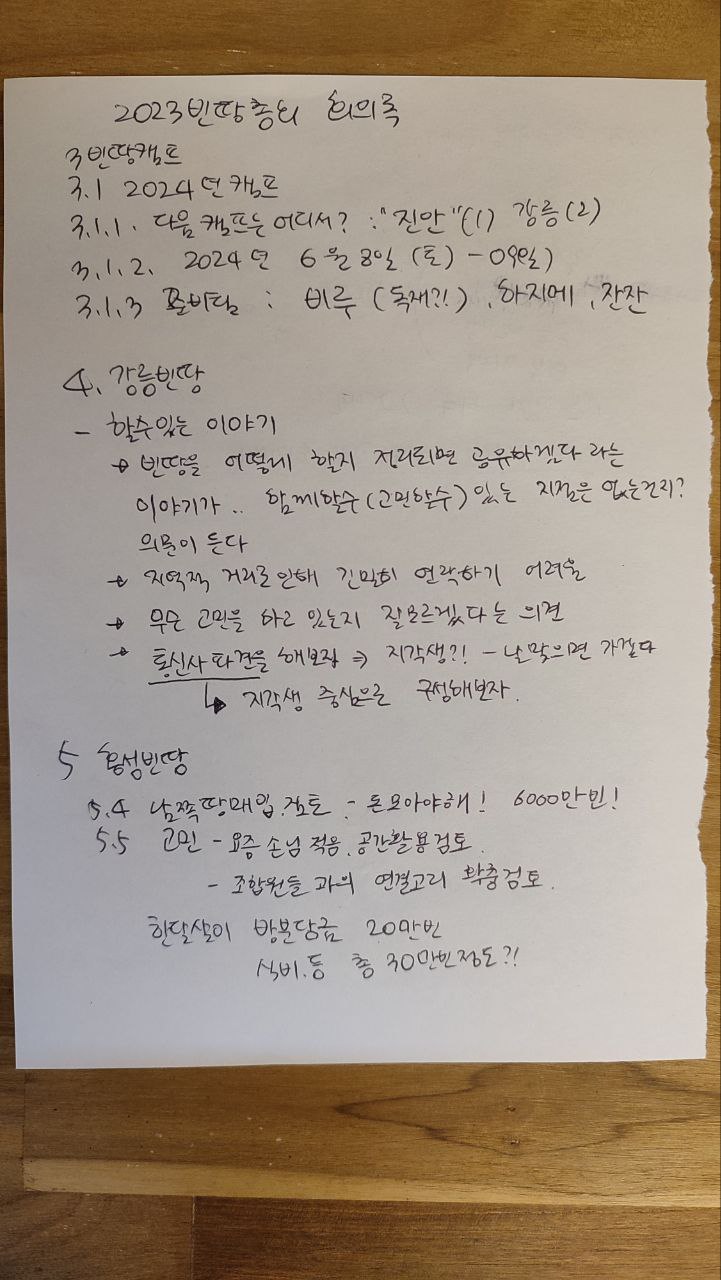 2023빈땅총회 회의록
3 빈땅캠프
3.1 2024년 캠프
3.1.1. 다음 캠프는 어디서? : "진안"(1) 강릉(2)
3.1.2. 2024년 6월 8일 (토) - 09일)
3.1.3 준비팀 : 비루 (독재?!), 하지메, 잔잔
4. 강릉빈땅
- 할수있는 이야기
→ 빈땅을 어떻게 할지 정리되면 공유하겠다 라는
이야기가.. 함께할수(고민할수) 있는 지점은 없는건지?
의문이 든다
→ 지역적 거리로 인해 긴밀히 연락하기 어려움
→ 무슨 고민을 하고 있는지 잘모르겠다는 의견
→ 통신사 파견을 해보집 ⇒ 지각생?! - 날맞으면 가겠다
↳ 지각생 중심으로 구성해보자.
5 홍성빈땅
5.4 남쪽땅매입.검토 - 돈모아야해! 6000만빈!
5.5 고민 - 요즘 손님 적음. 공간활용검토.
- 조합원들 과의 연결고리 확충검토.
한달살이 방분담금 20만빈
식비.등 총 30만빈정도?!